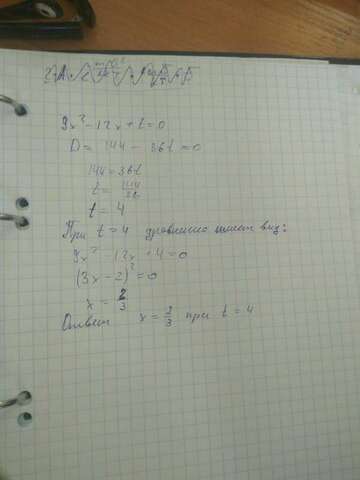 9x² - 12x + t = 0
D = 144 - 36t = 0
144 = 36t
t = 144/36
t = 4
При t = 4 уравнение имеет вид:
9x² - 12x + 4 = 0
(3x - 2)² = 0
x = 2/3
Ответ x = 2/3 при t = 4